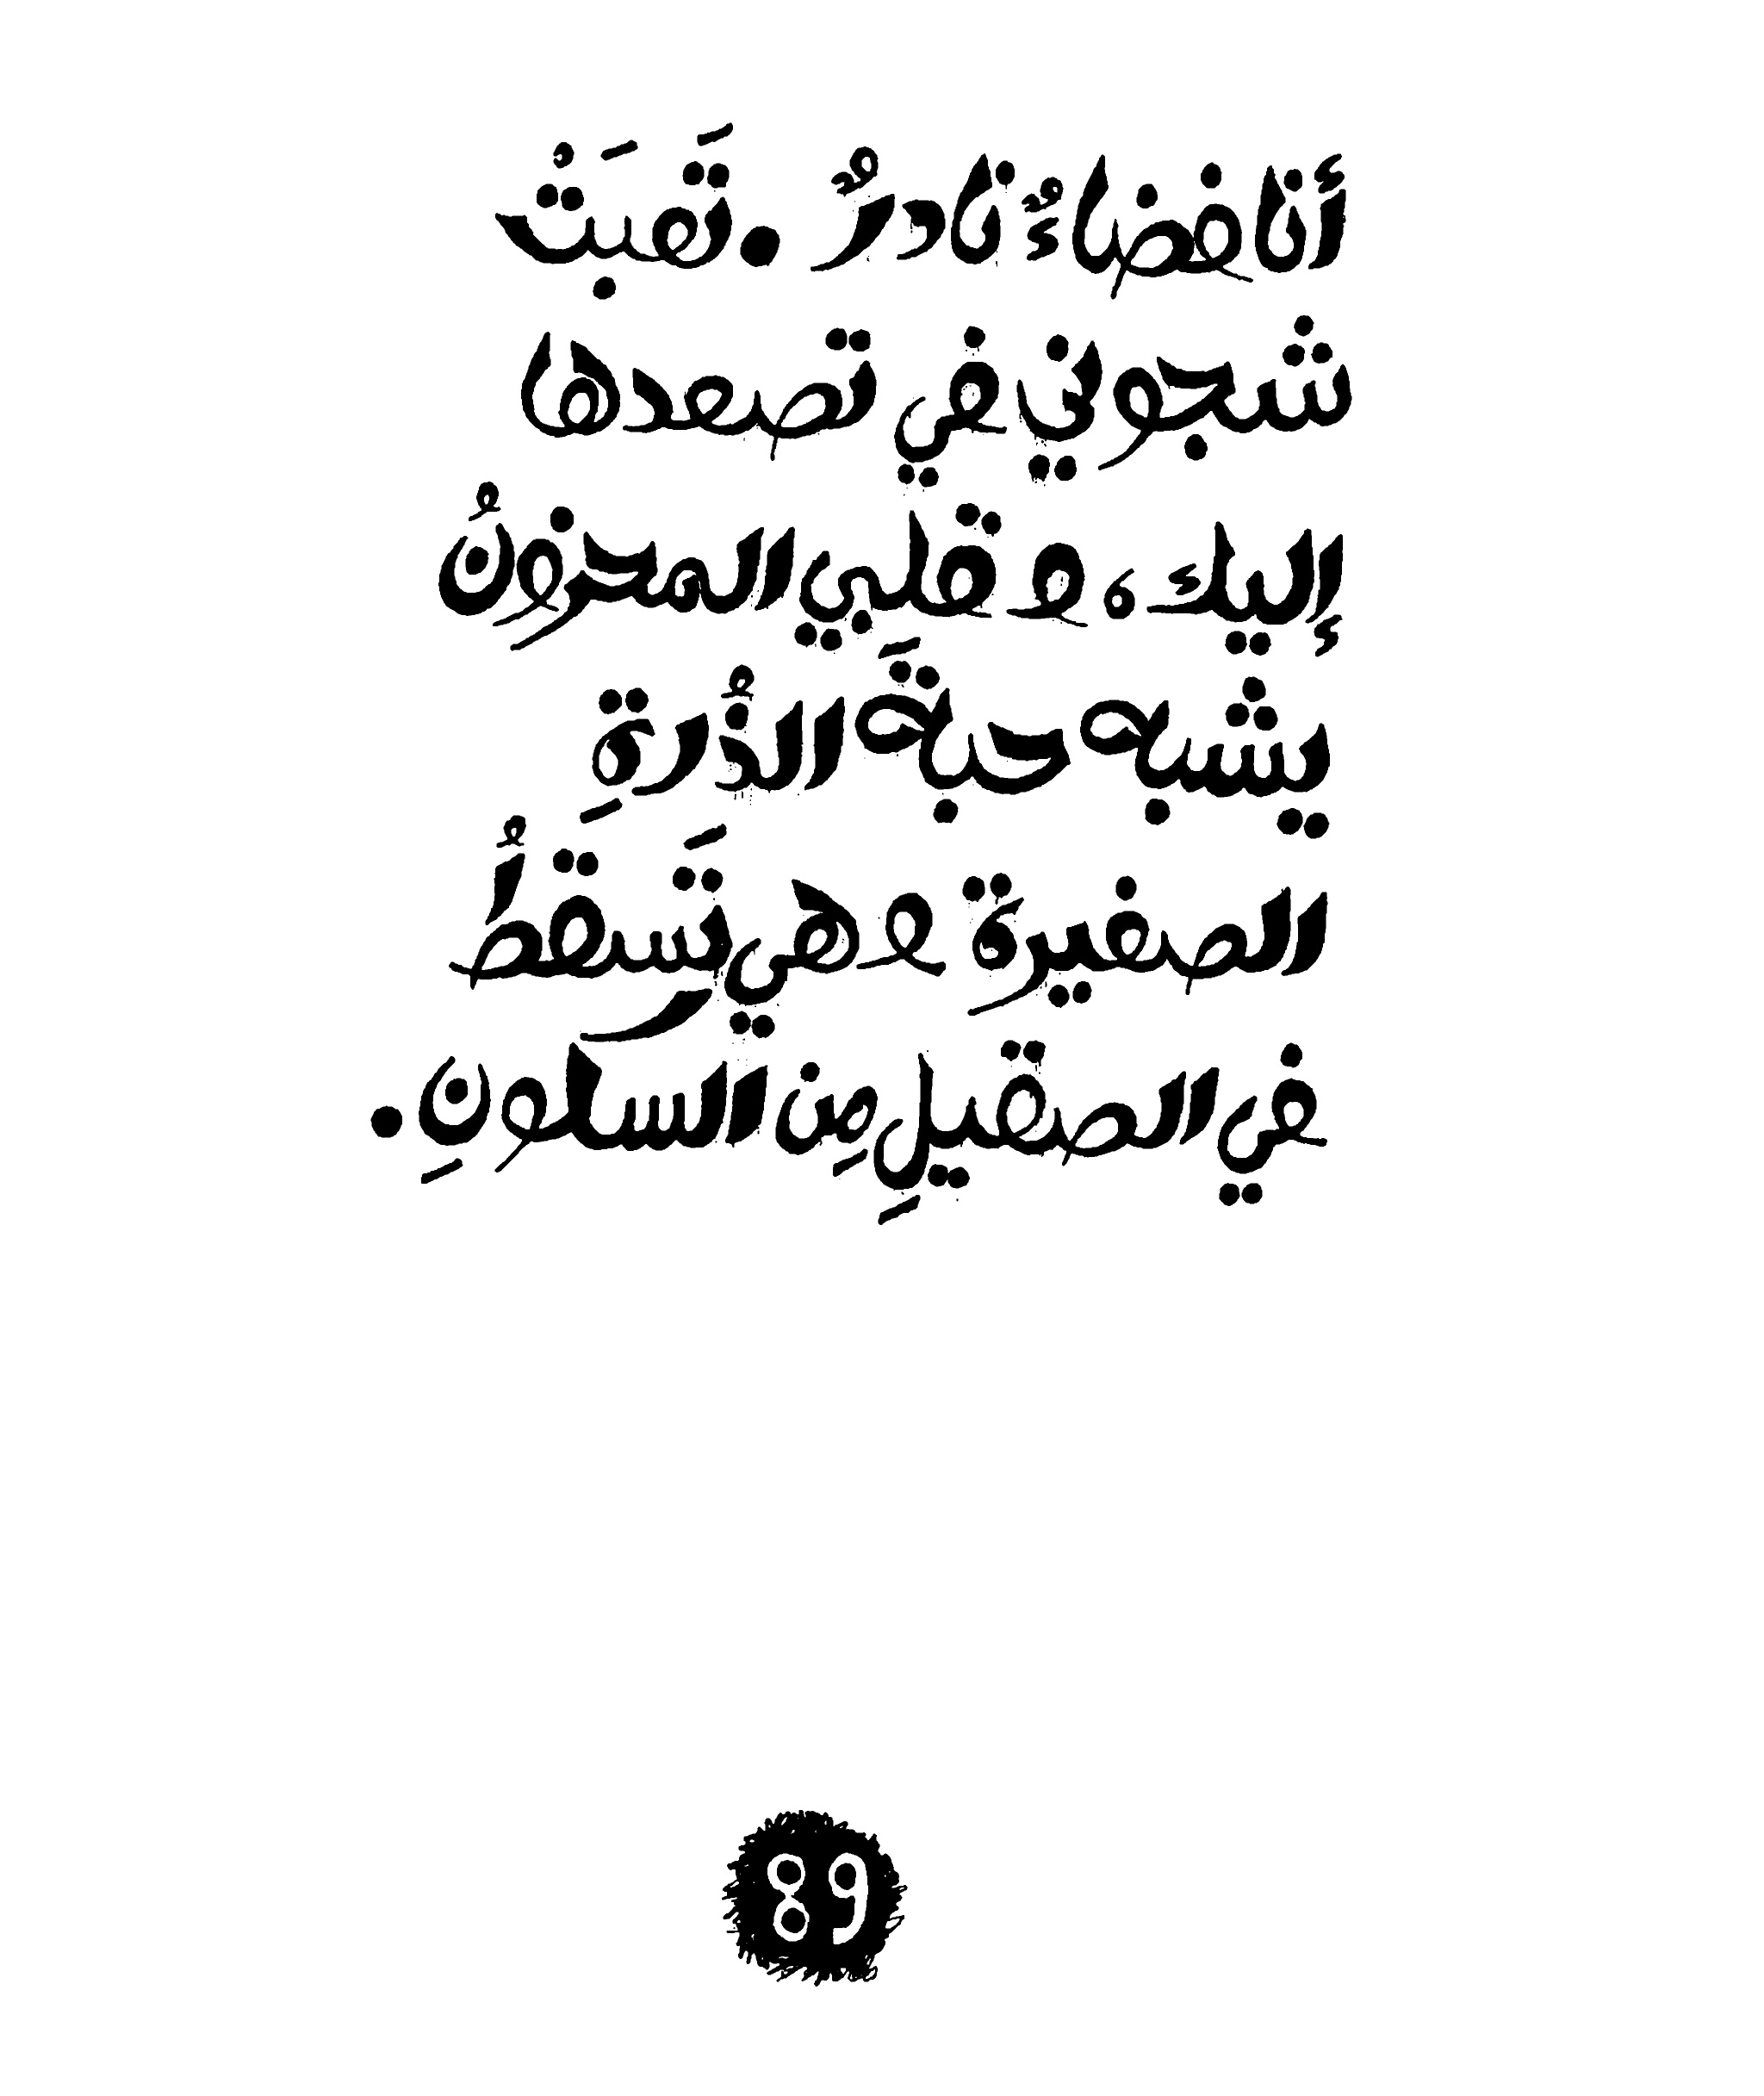 أنا فضاءٌ نادرٌ. تَعبَتُ
شجوني في تصعدها
إليك، و قلبي المحزونُ
يشبه حبةَ الذُرةِ
الصغيرة وهي تَسقطُ
في الصقيلِ مِن السكونِ.
89